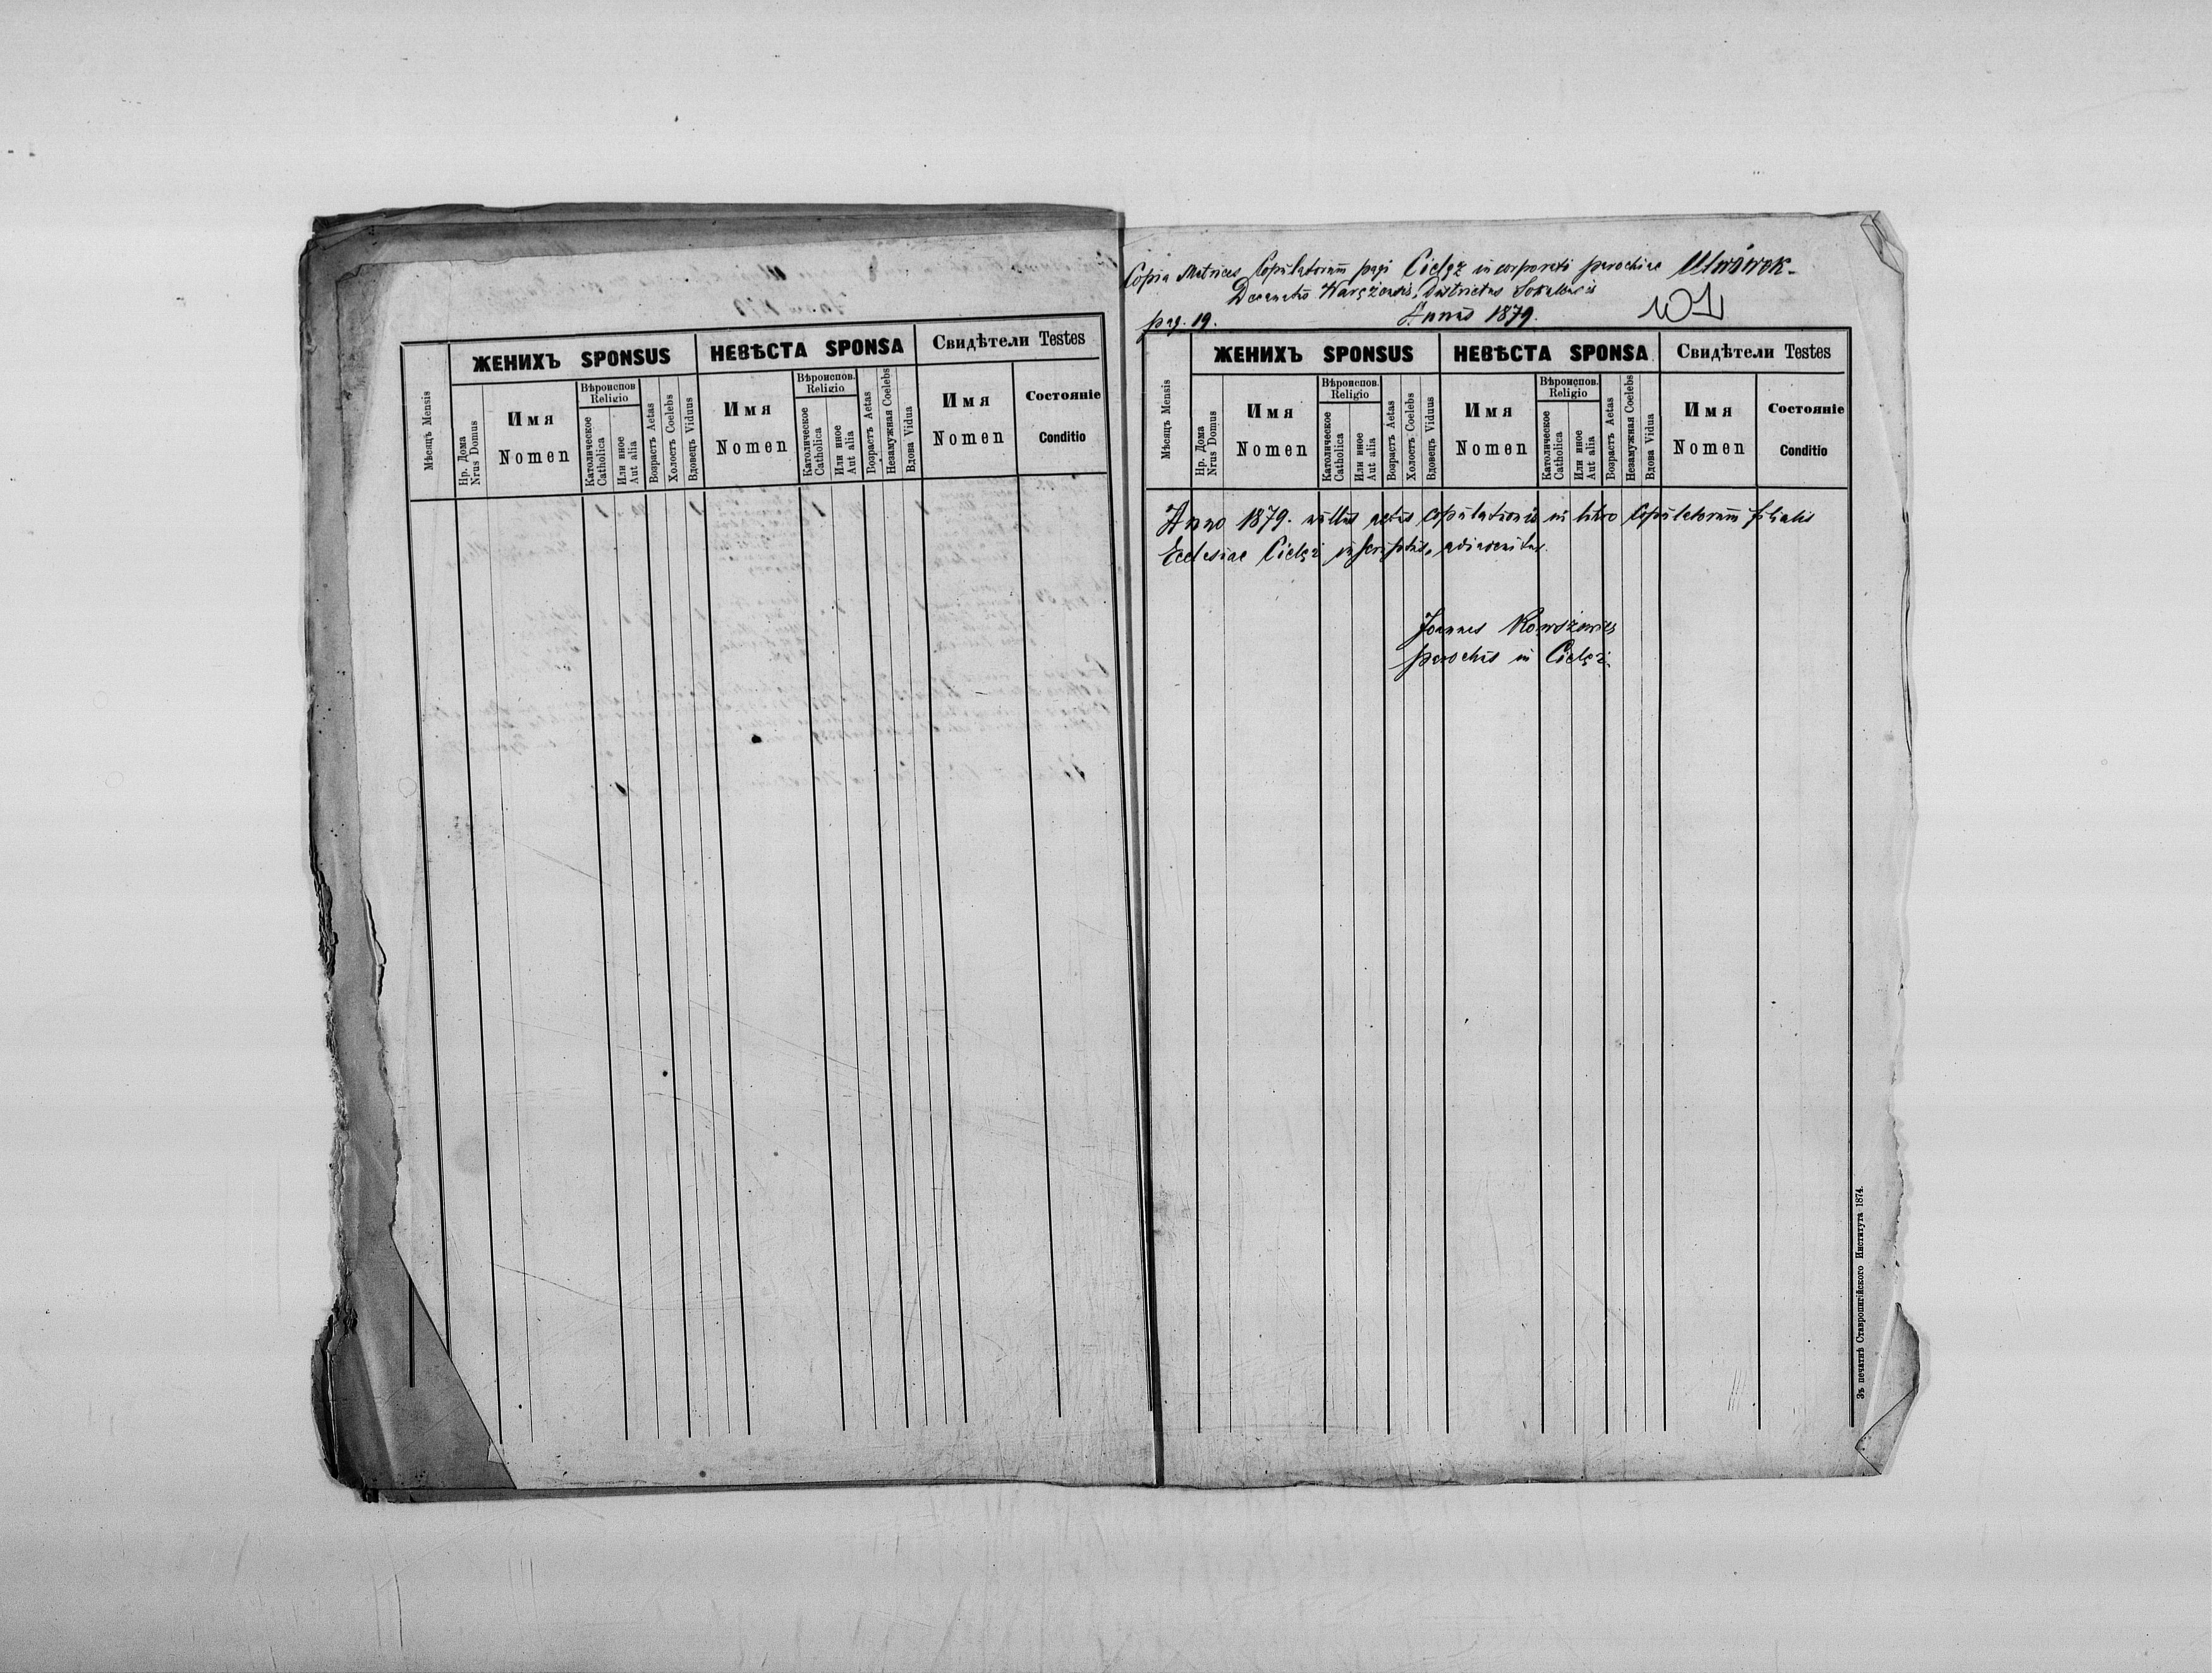 ЖЕНИХЪ SPONSUS
НЕВѢСТА SPONSA
Свидѣтели Testes
Мѣсяцъ Mensis
Нр. Дома
Nrus Domus
Имя
Nomen
Вѣроиспов.
Religio
Католическое
Catholica
Или иное
Aut alia
Возрастъ Aetas
Холостъ Coelebs
Вдовецъ Viduus
Имя
Nomen
Вѣроиспов.
Religio
Католическое
Catholica
Или иное
Aut alia
Возрастъ Aetas
Незамужная Coelebs
Вдова Vidua
Имя
Nomen
Состояніе
Conditio
Copia Matrices Copulatorum pagi Cieląz incorporati parochiae Uhrówek
Decanatus Waręzensis, Districtus Sokalensis
pag. 19.
Annus 1879.
101
ЖЕНИХЪ SPONSUS
НЕВѢСТА SPONSA
Свидѣтели Testes
Мѣсяцъ Mensis
Нр. Дома
Nrus Domus
Имя
Nomen
Вѣроиспов.
Religio
Католическое
Catholica
Или иное
Aut alia
Возрастъ Aetas
Холостъ Coelebs
Вдовецъ Viduus
Имя
Nomen
Вѣроиспов.
Religio
Католическое
Catholica
Или иное
Aut alia
Возрастъ Aetas
Незамужная Coelebs
Вдова Vidua
Имя
Nomen
Состояніе
Conditio
Anno 1879. nullus actus copulationis in libro Copulatorum filialis
Ecclesiae Cieląż inscriptus, adinvenitur.
Joannes
parochus in Cieląż.
Зъ печатнѣ Ставропигійского Института 1874.